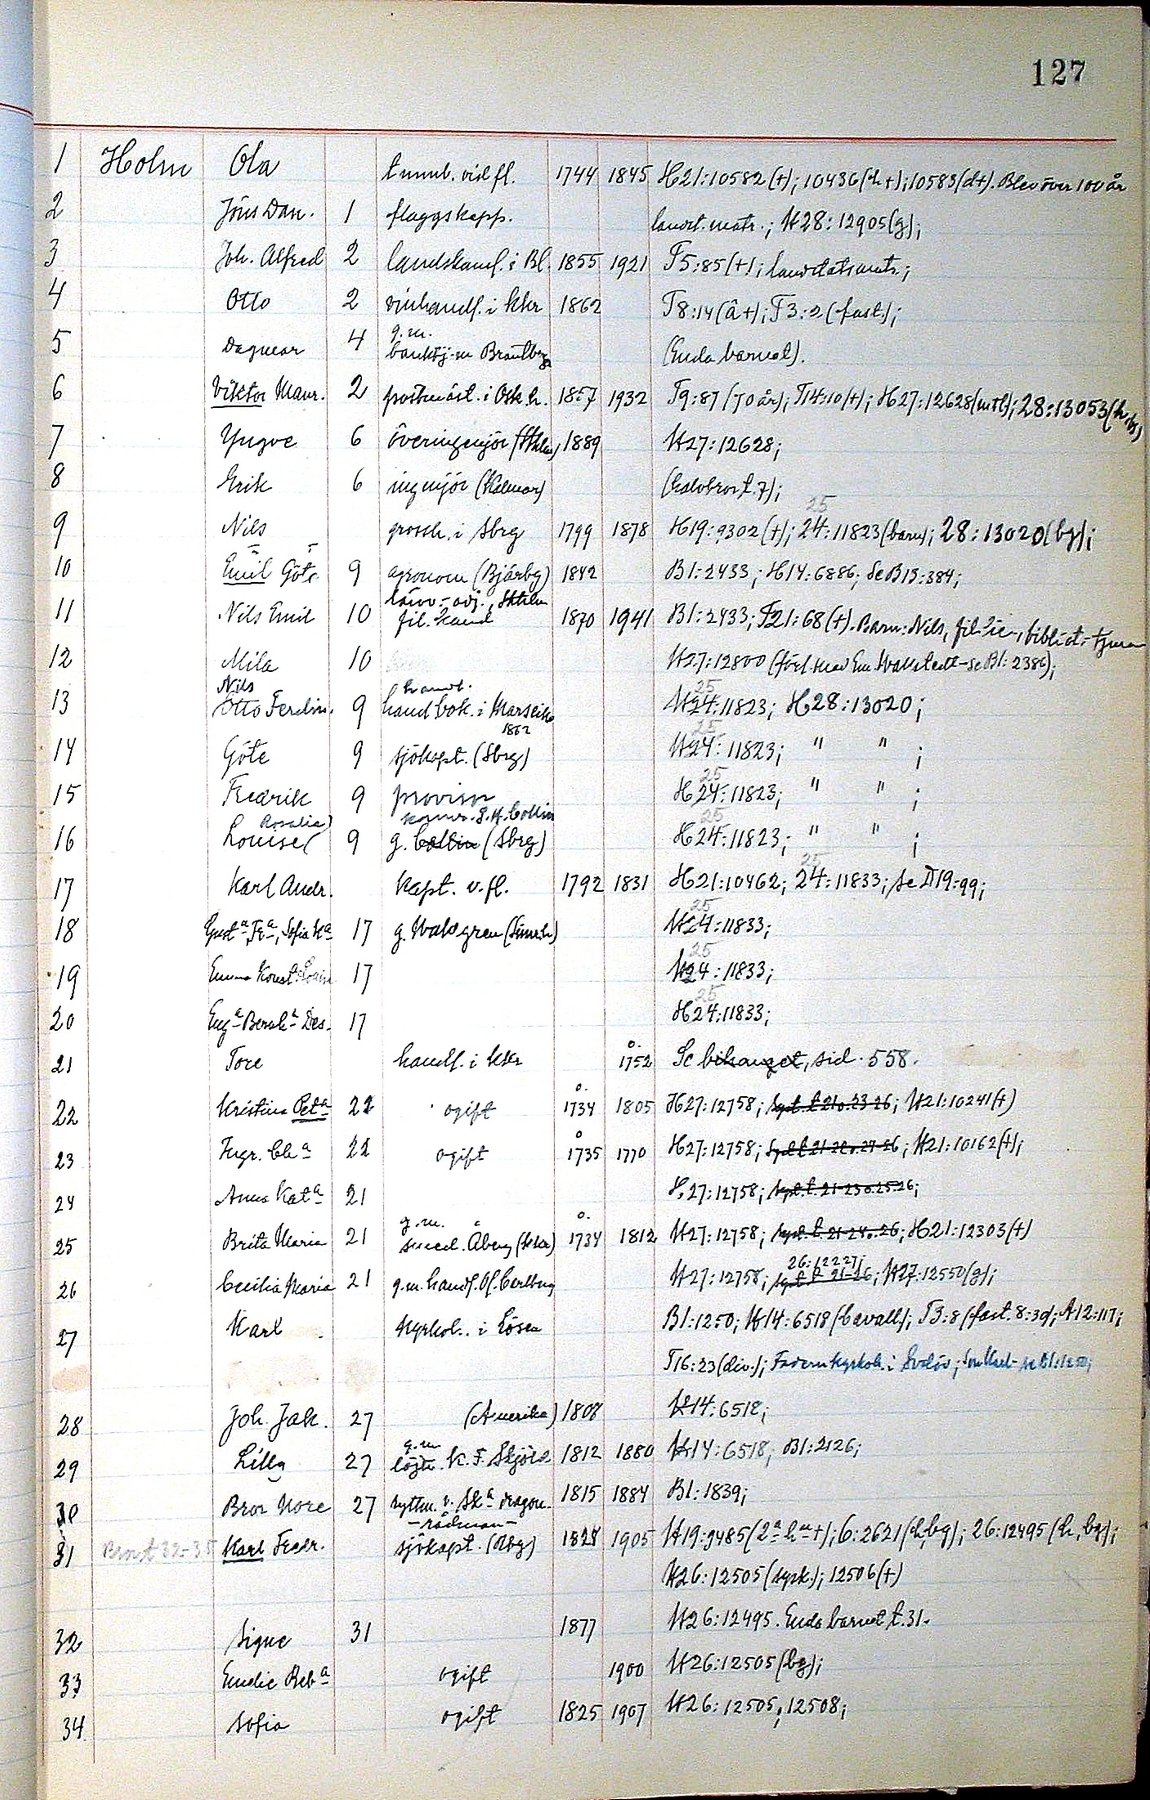 127
1 Holm Ola vid fl. 1744 1845 H21:10582(+); 10436(h+); 10583(d+). Blev över 100 år
2 Jöns Dan. 1 flaggskepp. landt.matr.; H28:12905(g);
3 Joh. Alfred 2 landskansl. i Bl. 1855 1921 T5:85(+); landstatsmatr;
4 Otto 2 vinhandl. i Kkr 1862 T8:14(å+); T3:2(fast);
g.m.
5 Dagmar 4 (Enda barnet).
6 Viktor Maur. 2 postmäst. i Osk.h. 1857 1932 T9:87(70 år); T14:10(+); H27:12628(mtl); 28:13053
7 Yngve 6 överingenjör (Sthlm) 1889 H27:12628;
8 Erik 6 ingenjör (Kalmar) (halvbror t. 7);
25
9 Nils grossh. i Sbrg 1799 1878 H19:9302(+); 24:11823(barn); 28:13020(bg);
10 Emil Göts. 9 agronom (Bjärbg) 1842 B1:2433; H14:6886; Se B13:384;
lärov-adj., Sthlm
11 Nils Emil 10 fil. kand 1870 1941 B1:2433; T21:68(+). Barn: Nils, fil. lic., bibliot.-tjman
12 Mila 10 H27:12800 (förl. med Em. Wallstedt-se B1:2386);
Nils handl. 25
13 Otto Ferdin. 9 handl.bok. i Marseille H24:11823; H28:13020;
1862 25
14 Göte 9 sjökapt. (Sbrg) H24:11823; " " ;
25
15 Fredrik 9 provisor H24:11823; " " ;
Rosalia) 25
16 Louise( 9 g. Collin (Sbrg) H24:11823; " " ;
25
17 Karl Andr. Kapt. v. fl. 1792 1831 H21:10462; 24:11833; se D19:99;
25
18 Gustᵃ, Frᵃ, Sofia Kᵃ 17 g. Walsgren (Simrh) H24:11833;
25
19 Emma Konst. Lovisa 17 H24:11833;
25
20 Eugᵃ Bernhᵃ Des. 17 H24:11833;
ö.
21 Tore handl. i Kkr 1752 Se bihanget, sid. 558.
ö.
22 Kristina Petᵃ 22 ogift 1734 1805 H27:12758; syst. t. 21 o. 23-26; H21:10241(+)
ö
23 Fregr. Chᵃ 22 ogift 1735 1770 H27:12758; H21:10162(+);
24 Anna Katᵃ 21 H27:12758; syst. t. 21-23 o. 25-26;
g.m. ö.
25 Brita Maria 21 Åberg (Kkr) 1734 1812 H27:12758; syst. t. 21-24 o. 26; H21:12303(+)
26:12227;
26 Cecilia Maria 21 g.m. handl. Ol. Carlberg H27:12758; H27:12550(g);
27 Karl kyrkoh. i Lösen B1:1250; H14:6518(bavall); T3:8(fast. 8:39; A12:117;
T16:23(div.); Fadern kyrkoh. i ; se B1:1250;
28 Joh. Jak. 27 (Amerika) 1808 H14:6518;
g.m
29 Lilly 27 löjtn. K. F. Sköld 1812 1880 H14:6518; B1:2126;
30 Bror Nore 27 ryttm. v. Skᵃ dragon. 1815 1884 B1:1839;
-rådman-
31 Bror t 32-35 Karl Fredr. sjökapt. (Åbg) 1828 1905 H19:9485(2ᵃ hᵘ+); 6:2621(h,bg); 26:12495(h, bg);
H26:12505(sysk.); 12506(+)
32 Signe 31 1877 H26:12495. Enda barnet t. 31.
33 Emelie Rebᵃ ogift 1900 H26:12505(bg);
34. Sofia ogift 1825 1907 H26:12505; 12508;